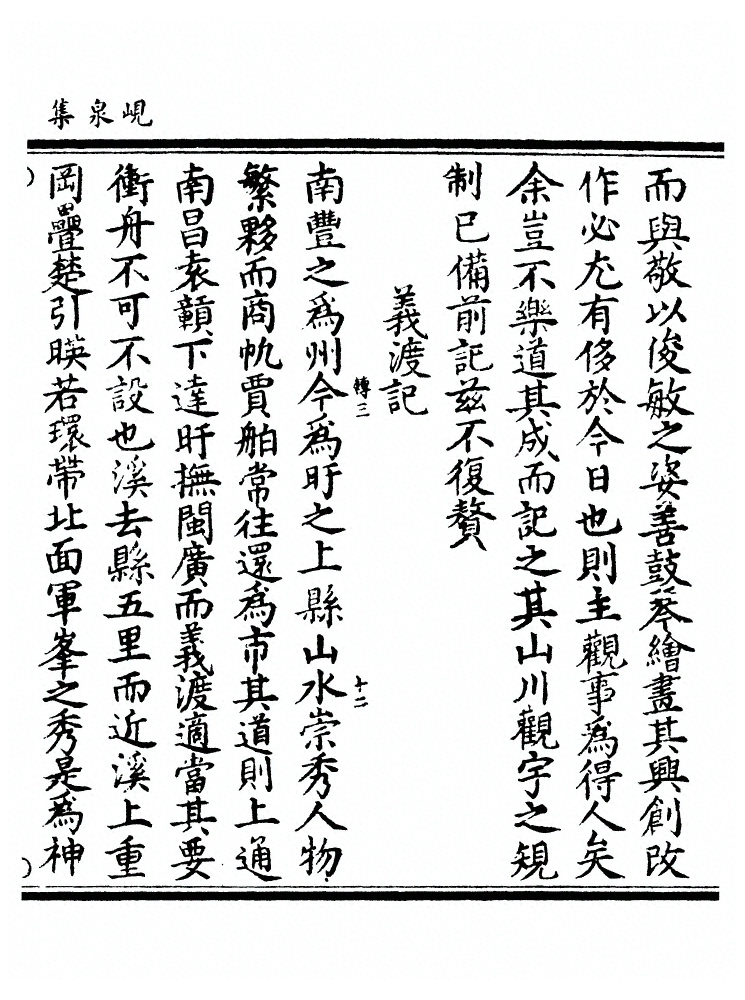 峴泉集
而與敬以俊敏之姿善鼓琴繪畫其興創改
作必尤有侈於今日也則主觀事為得人矣
余豈不樂道其成而記之其山川觀宇之規
制已備前記茲不復贅
義渡記
轉三
十二
南豐之爲州今爲盱之上縣山水崇秀人物
繁夥而商帆賈舶常往還爲市其道則上通
南昌袁贛下達盱撫閩廣而義渡適當其要
衝舟不可不設也溪去縣五里而近溪上重
岡疊楚引暎若環帶北面軍峯之秀是爲神